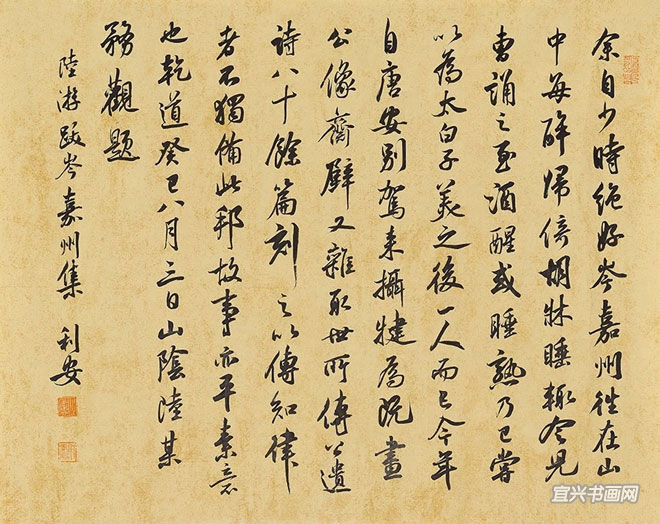 余自少時絕好岑嘉州往在山
中每醉歸倚胡牀睡輒令兒
曹誦之至酒醒或睡熟乃已嘗
以為太白子美之後一人而已今年
自唐安別駕來攝犍為既畫
公像齋壁又雜取世所傳公遺
詩八十餘篇刻之以傳知律
者不獨備此邦故事亦平素意
也乾道癸巳八月三日山陰陸某
務觀題
陸游跋岑嘉州集 利安
宜兴书画网